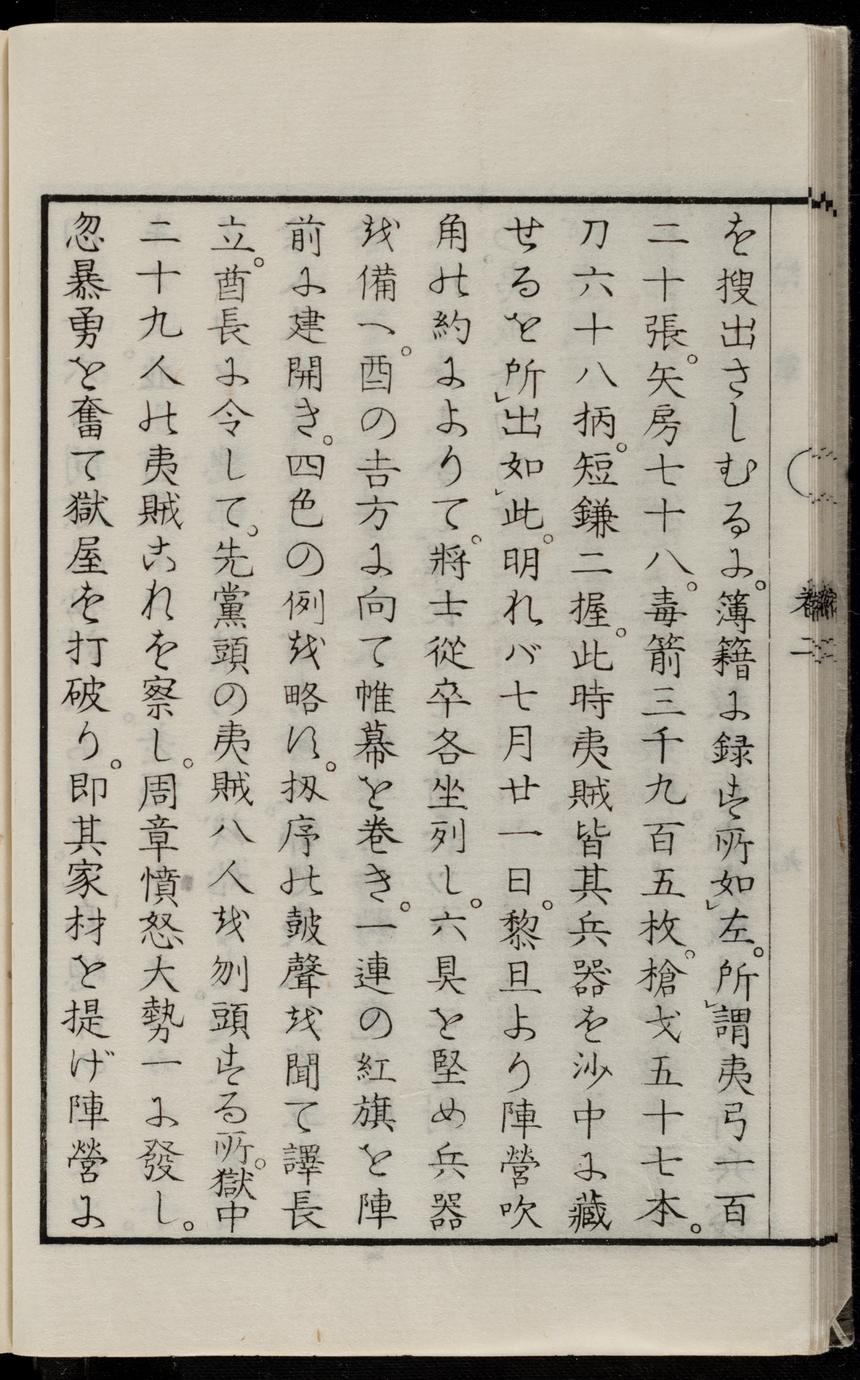 を搜出さしむるに。簿籍に録する所如左。所謂夷弓一百
二十張。矢房七十八。毒箭三千九百五枚。槍戈五十七本。
刀六十八柄。短鎌二握。此時夷賊皆其兵器を沙中に藏
せるを所出如此。明れバ七月廿一日。黎旦より陣營吹
角の約によりて。將士從卒各坐列し。六具を堅め兵器
を備へ。酉の吉方に向て帷幕を巻き。一連の紅旗を陣
前に建開き。四色の例を略す。扨序の皷聲を聞て譯長
立。酋長に令して。先黨頭の夷賊八人を刎頭する所。獄中
二十九人の夷賊これを察し。周章憤怒大勢一に發し。
忽暴勇を奮て獄屋を打破り。即其家材を提げ陣營に
二